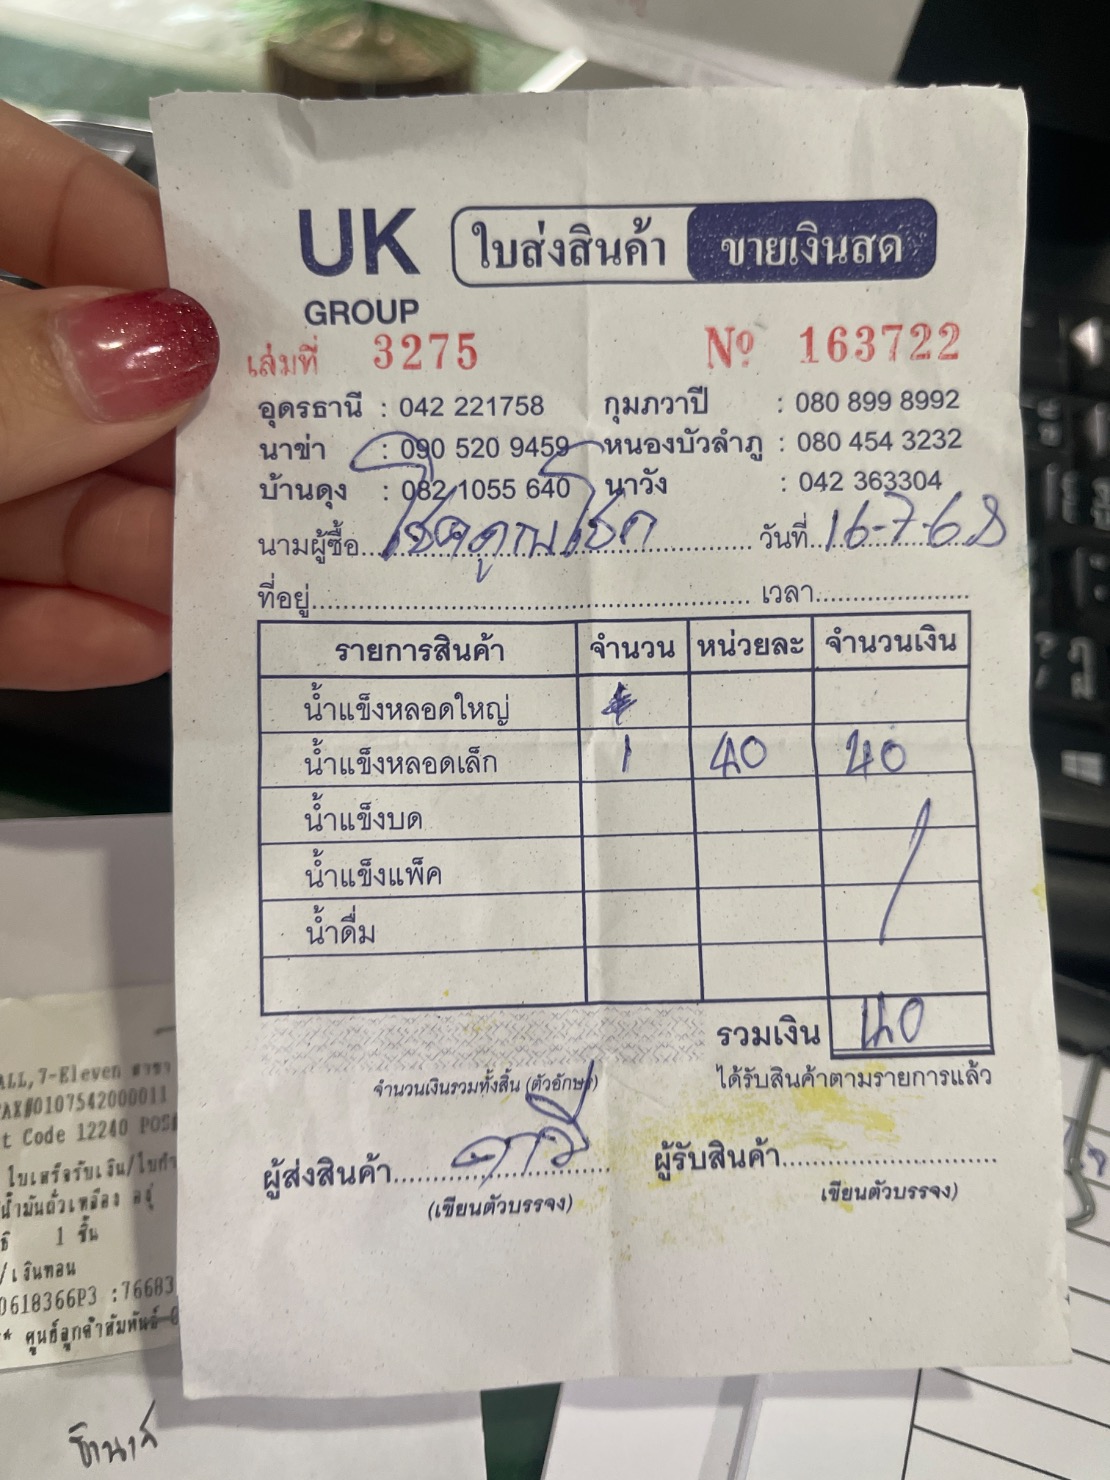 UK
GROUP
ใบส่งสินค้า ขายเงินสด
เล่มที่ 3275 Nº 163722
อุดรธานี : 042 221758 กุมภวาปี : 080 899 8992
นาข่า : 090 520 9459 หนองบัวลำภู : 080 454 3232
บ้านดุง : 082 1055 640 นาวัง : 042 363304
นามผู้ซื้อ โชคคูณโชค วันที่ 16-7-68
ที่อยู่ เวลา
รายการสินค้า จำนวน หน่วยละ จำนวนเงิน
น้ำแข็งหลอดใหญ่
น้ำแข็งหลอดเล็ก 1 40 40
น้ำแข็งบด
น้ำแข็งแพ็ค
น้ำดื่ม
รวมเงิน 40
จำนวนเงินรวมทั้งสิ้น (ตัวอักษร) ได้รับสินค้าตามรายการแล้ว
ผู้ส่งสินค้า ผู้รับสินค้า
(เขียนตัวบรรจง) เขียนตัวบรรจง)
ALL,7-Eleven สาขา
TAX#0107542000011
t Code 12240 POS#
ใบเสร็จรับเงิน/ใบกำ
น้ำมันถั่วเหลือง องุ่
1 ชิ้น
/เงินทอน
0618366P3 :76683
* ศูนย์ลูกค้าสัมพันธ์